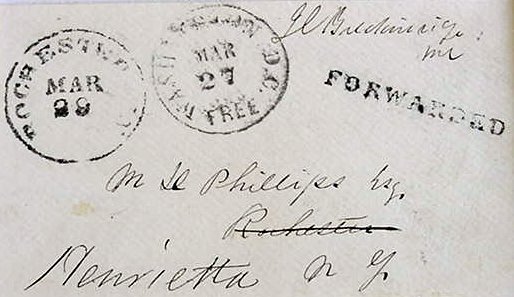 J C Breckinridge
ROCHESTER N.Y.
MAR
29
WASHINGTON D.C.
MAR
27
FREE
FORWARDED
M D Phillips Esq.
Rochester
Henrietta N Y.